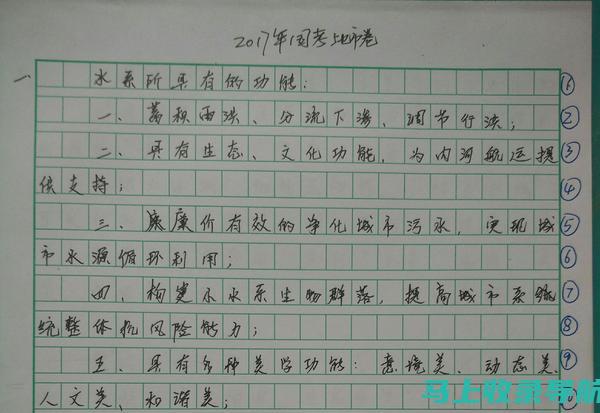 2017年国考地市卷
一
水系所具有的功能：
一、蓄积雨洪、分流下渗、调节行洪； ②
二、具有生态、文化功能，为内河航运提 ③
供支持； ④
三、廉价有效的净化城市污水，实现城 ⑤
市水源循环利用； ⑥
四、构建水系生物群落，提高城市系统 ⑦
统整体抗风险能力； ⑧
五、具有多种美学功能：意境美、动态美、 ⑨
人文美、和谐美；
马上收录导航